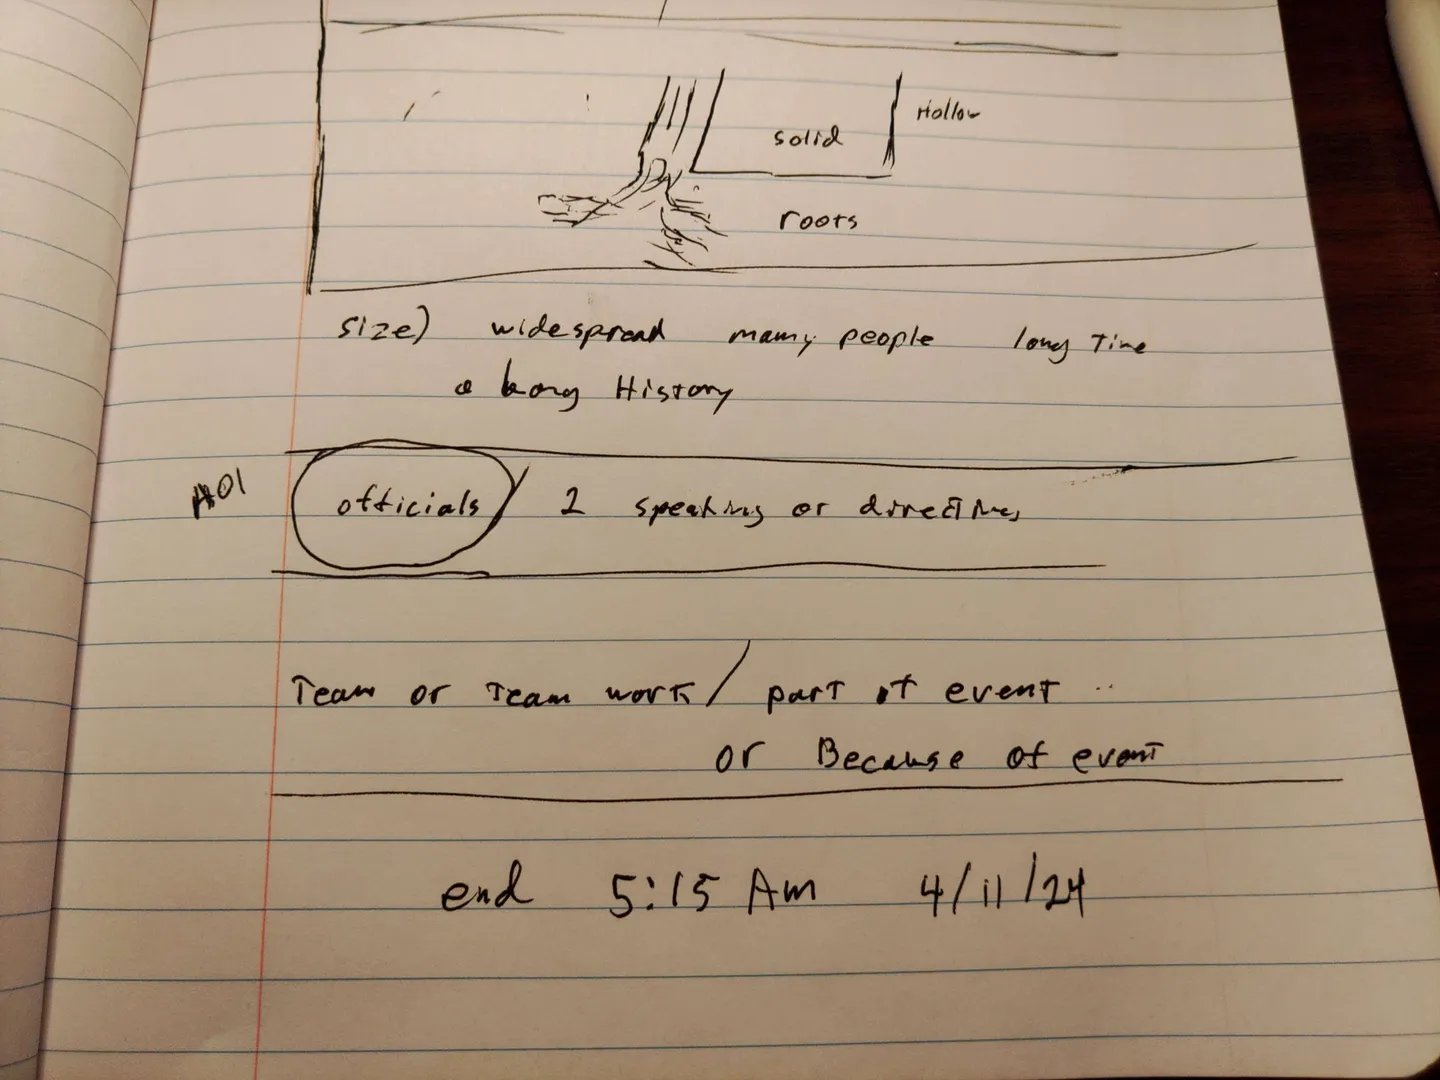 Hollow
solid
roots
size) widespread mamy people long Time
a long History
AOI
officials / 2 speaking or directives
Team or Team work / part of event ..
or Because of event
end 5:15 Am 4/11/24